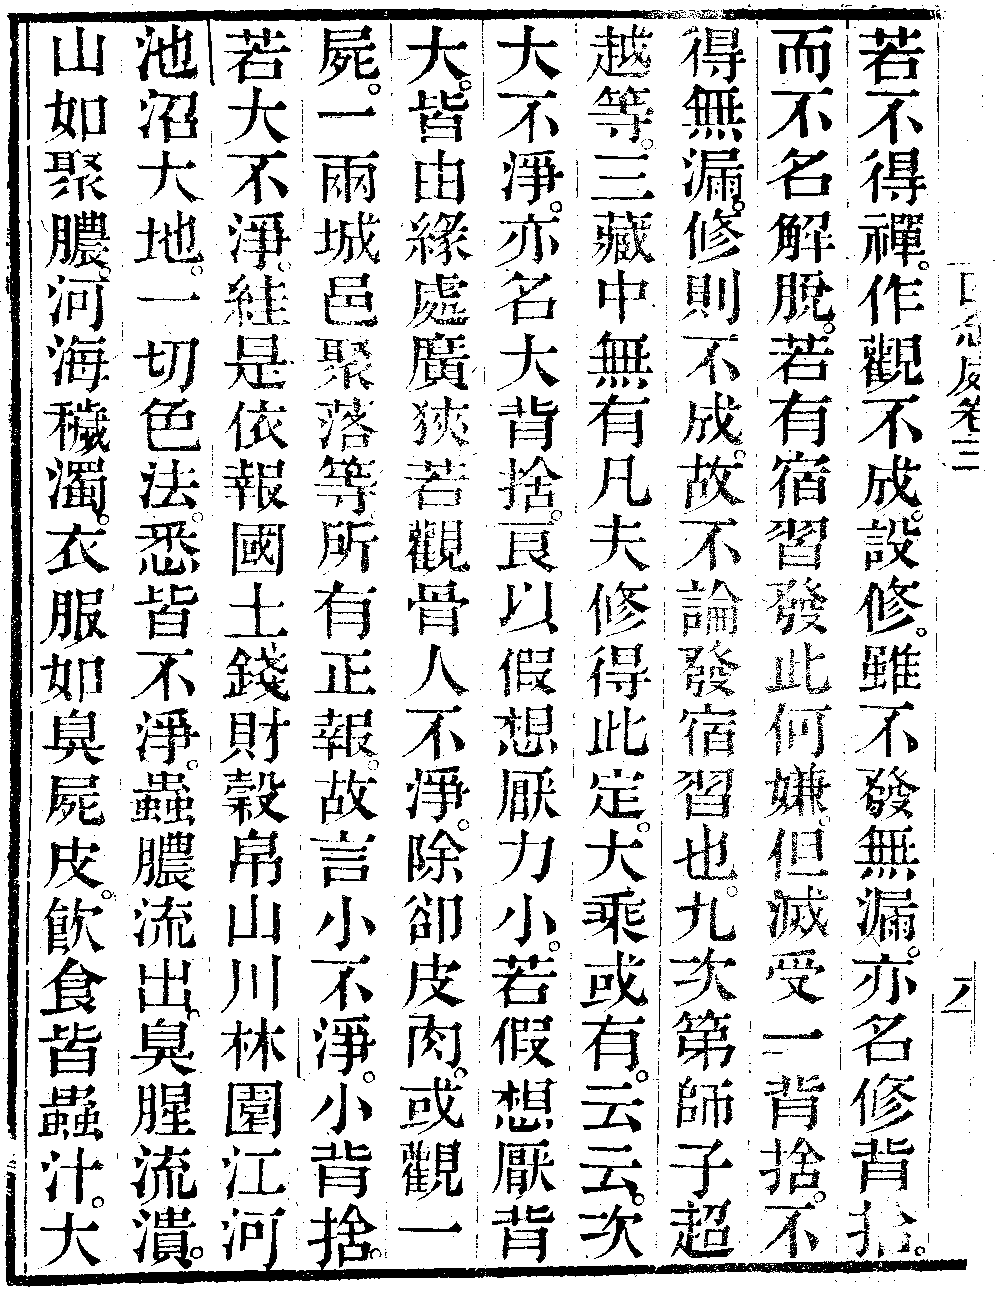 若不得禪。作觀不成。設修。雖不發無漏。亦名修背捨。
而不名解脫。若有宿習發此何嫌。但滅受一背捨。不
得無漏。修則不成。故不論發宿習也。九次第師子超
越等。三藏中無有凡夫修得此定。大乘或有。云云。次
大不淨。亦名大背捨。良以假想厭力小。若假想厭背
大。皆由緣處廣狹若觀骨人不淨。除卻皮肉。或觀一
屍。一兩城邑聚落等所有正報。故言小不淨。小背捨。
若大不淨。絓是依報國土錢財穀帛山川林園江河
池沼大地。一切色法。悉皆不淨。蟲膿流出。臭腥流潰。
山如聚膿。河海穢濁。衣服如臭屍皮。飲食皆蟲汁。大